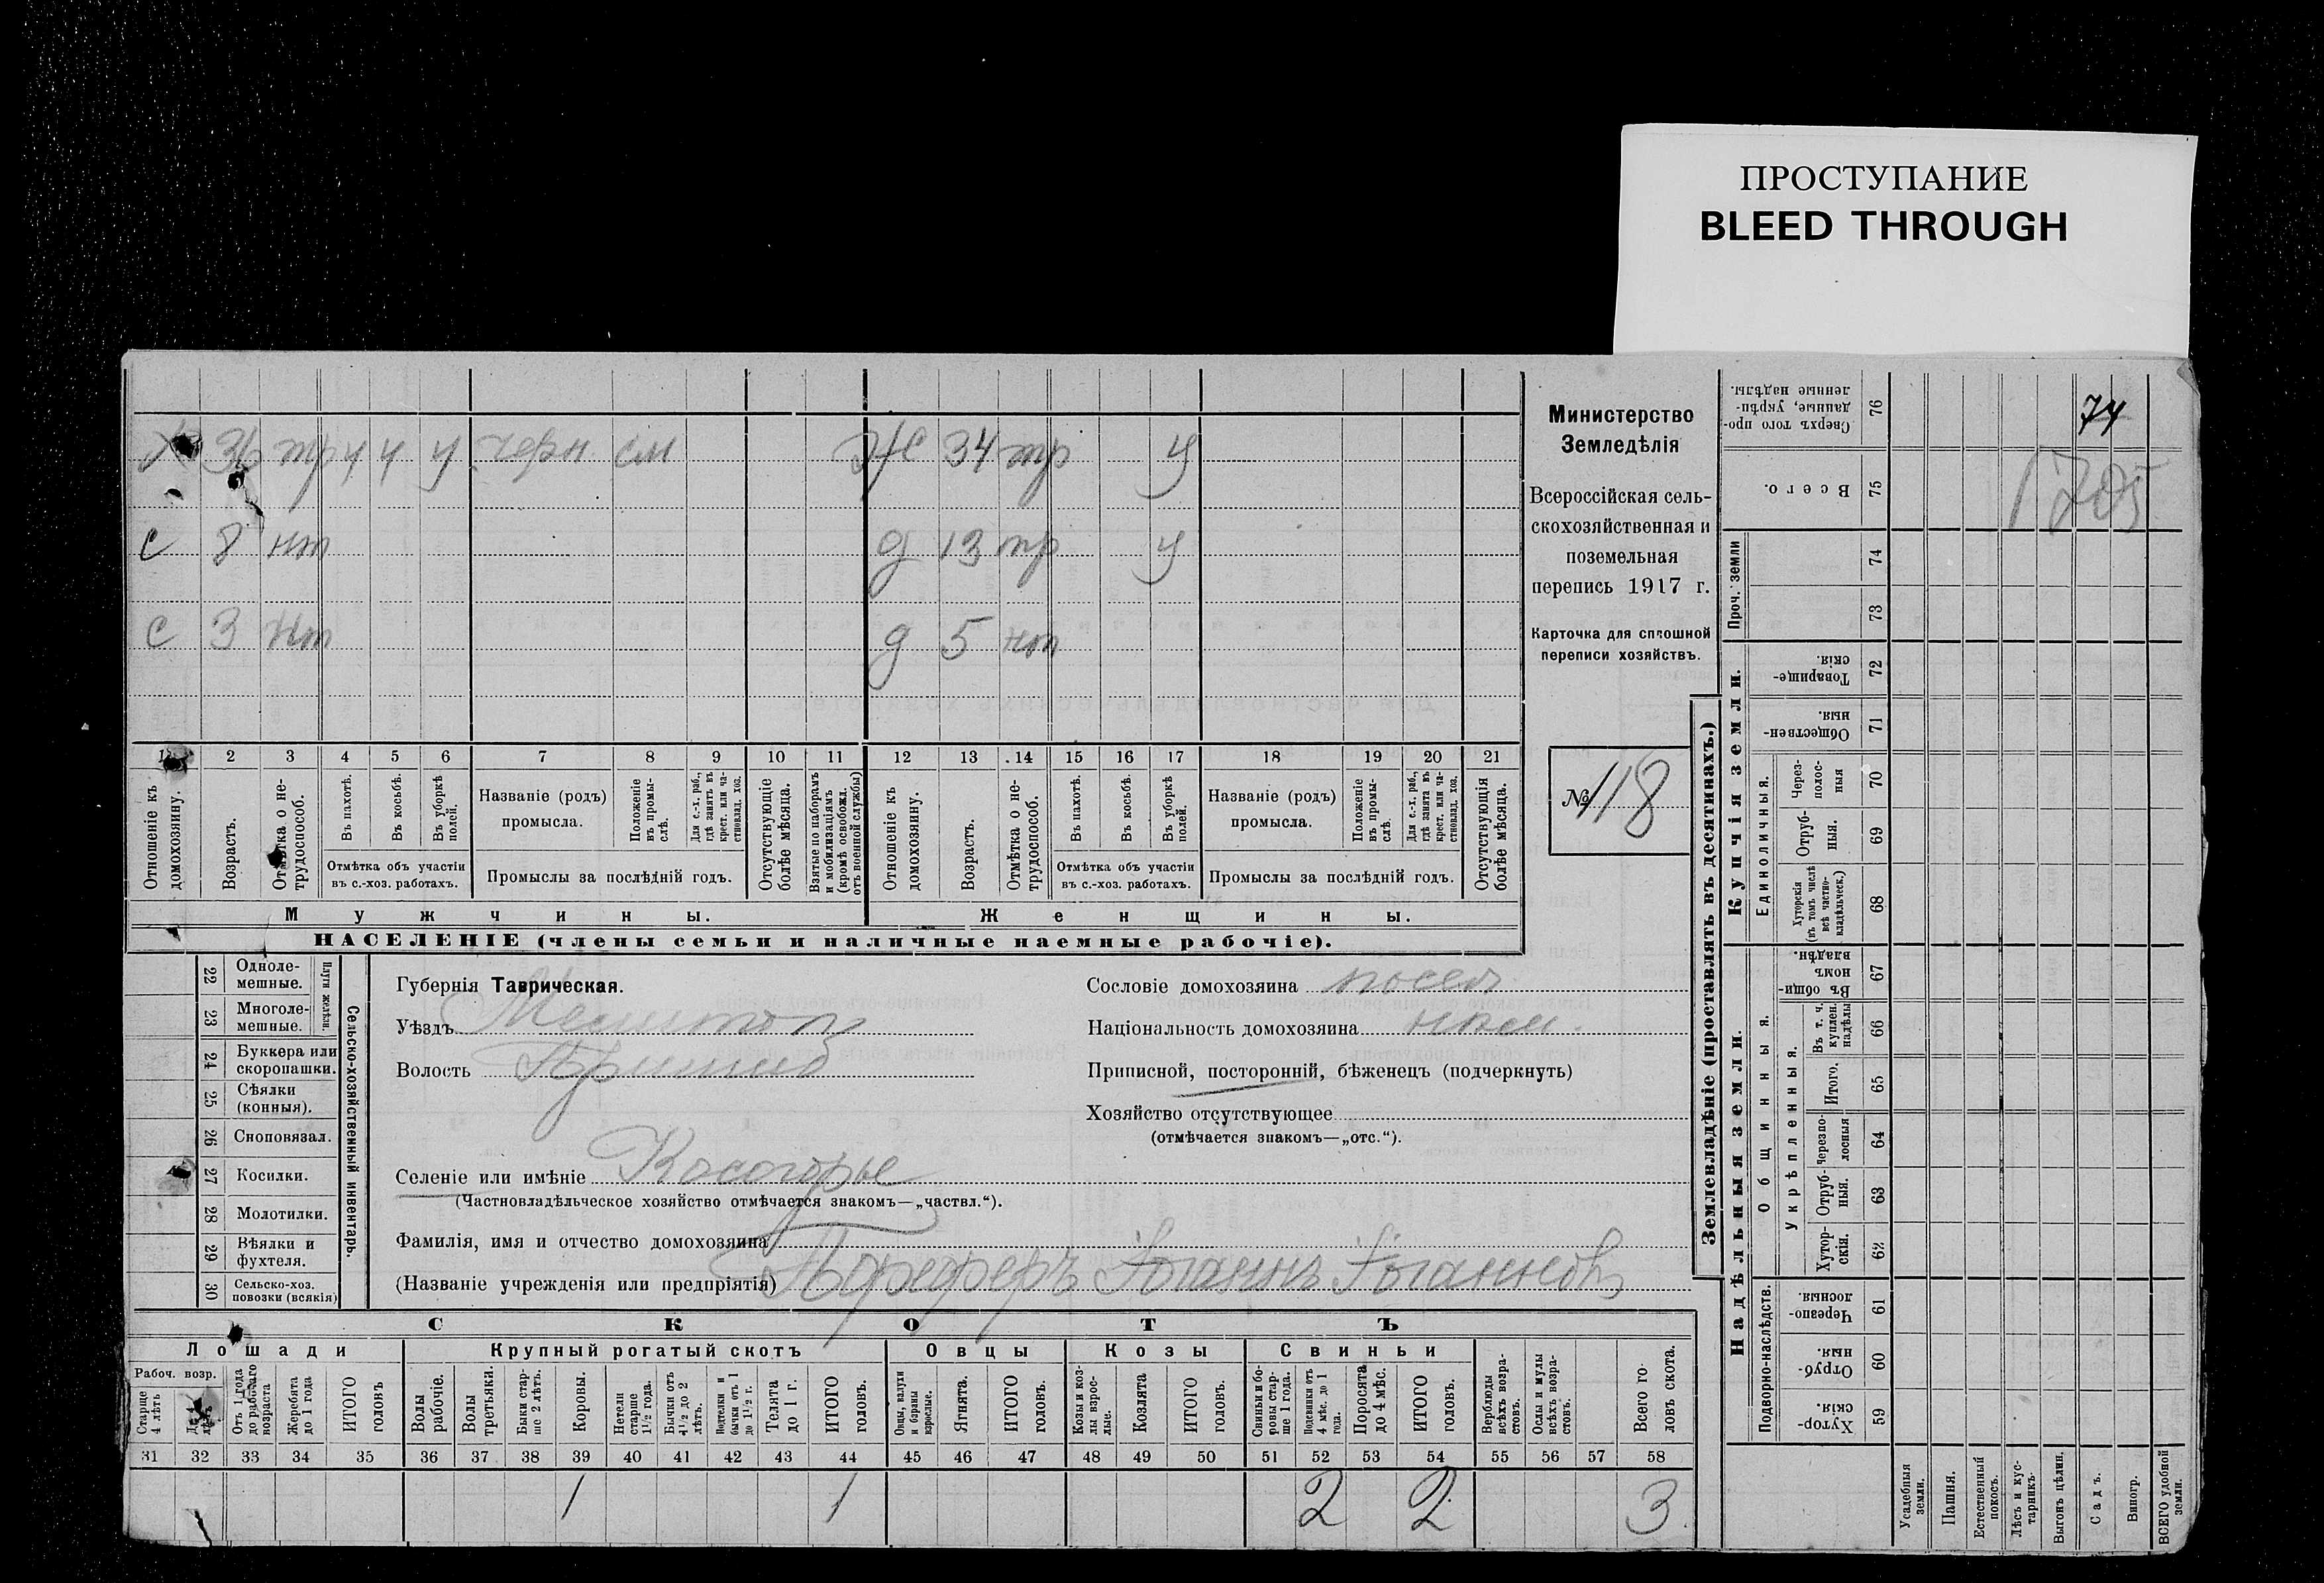 ПРОСТУПАНИЕ
BLEED THROUGH
Х 36 тр ч ч у черн. см Ж 34 тр у
с 8 нт д 13 тр у
с 3 нт д 5 нт
1 2 3 4 5 6 7 8 9 10 11 12 13 14 15 16 17 18 19 20 21
Отношеніе къ домохозяину.
Возрастъ.
Отмѣтка о не-трудоспособ.
Въ пахотѣ.
Въ косьбѣ.
Въ уборкѣ полей.
Отмѣтка объ участіи въ с.-хоз. работахъ.
Названіе (родъ) промысла.
Положеніе въ промы-слѣ.
Для с.-х. раб., гдѣ занятъ въ крест. или ча-стновлад. хоз.
Промыслы за послѣдній годъ.
Отсутствующіе болѣе мѣсяца.
Взятые по наборамъ и мобилизаціямъ (кромѣ освобожд. отъ военной службы)
Отношеніе къ домохозяину.
Возрастъ.
Отмѣтка о не-трудоспособ.
Въ пахотѣ.
Въ косьбѣ.
Въ уборкѣ полей.
Отмѣтка объ участіи въ с.-хоз. работахъ.
Названіе (родъ) промысла.
Положеніе въ промы-слѣ.
Для с.-х. раб., гдѣ занята въ крест. или ча-стновлад. хоз.
Промыслы за послѣдній годъ.
Отсутствующія болѣе мѣсяца.
Мужчины.
Женщины.
НАСЕЛЕНІЕ (члены семьи и наличные наемные рабочіе).
Министерство
Земледѣлія
Всероссійская сель-
скохозяйственная и
поземельная
перепись 1917 г.
Карточка для сплошной
переписи хозяйствъ.
№ 118
22 Одноле-мешные.
23 Многоле-мешные.
Плуги желѣзн.
24 Буккера или скоропашки.
25 Сѣялки (конныя).
26 Сноповязал.
27 Косилки.
28 Молотилки.
29 Вѣялки и фухтеля.
30 Сельско-хоз. повозки (всякія)
Сельско-хозяйственный инвентарь.
Губернія Таврическая.
Уѣздъ Мелитоп
Волость Пришиб
Селеніе или имѣніе Косогорье
(Частновладѣльческое хозяйство отмѣчается знакомъ—„частвл.“).
Фамилія, имя и отчество домохозяина
(Названіе учрежденія или предпріятія) Пфеферъ Іоганнъ Іоганнов
Сословіе домохозяина посел.
Національность домохозяина нѣм.
Приписной, посторонній, бѣженецъ (подчеркнуть)
Хозяйство отсутствующее
(отмѣчается знакомъ—„отс.“).
СКОТЪ
Лошади
Крупный рогатый скотъ
Овцы
Козы
Свиньи
Рабоч. возр.
Старше 4 лѣтъ
Отъ 1 года до рабочаго возраста
Жеребята до 1 года
ИТОГО головъ
Волы рабочіе.
Волы третьяка.
Быки стар-ше 2 лѣтъ.
Коровы.
Нетели старше 1½ года.
Бычки отъ 1½ до 2 лѣтъ.
Подтелки и бычки отъ 1 до 1½ г.
Телята до 1 г.
ИТОГО головъ.
Овцы, валухи и бараны взрослые.
Ягнята.
ИТОГО головъ.
Козы и коз-лы взрос-лые.
Козлята
ИТОГО головъ.
Свиньи и бо-ровы стар-ше 1 года.
Подсвинки отъ 4 мѣс. до 1 года.
Поросята до 4 мѣс.
ИТОГО головъ.
Верблюды всѣхъ возра-стовъ.
Ослы и мулы всѣхъ возра-стовъ.
Всего го-ловъ скота.
31 32 33 34 35 36 37 38 39 40 41 42 43 44 45 46 47 48 49 50 51 52 53 54 55 56 57 58
1 1 2 2 3
Землевладѣніе (проставлять въ десятинахъ.)
Надѣльныя земли.
Купчія земли.
Проч. земли
Подворно-наслѣдств.
Общинныя.
Укрѣпленныя.
Единоличныя.
Сверхъ того про-данные, укрѣп-ленные надѣлы. 76 74
Всего. 75 1705
74
73
Товарище-скія. 72
Обществен-ныя. 71
Через-полос-ныя 70
Отруб-ныя. 69
Хуторскія (въ томъ числѣ всѣ частно-владѣльческ.) 68
Въ общи-номъ владѣн. 67
Въ т. ч. куплен. надѣлы 66
Итого. 65
Черезпо-лосныя 64
Отруб-ныя. 63
Хутор-скія. 62
Черезпо-лосныя. 61
Отруб-ныя. 60
Хутор-скія. 59
Усадебныя земли.
Пашня.
Естественный покосъ.
Лѣсъ и кус-тарникъ.
Выгонъ цѣлин.
Садъ.
Виногр.
ВСЕГО удобной земли.